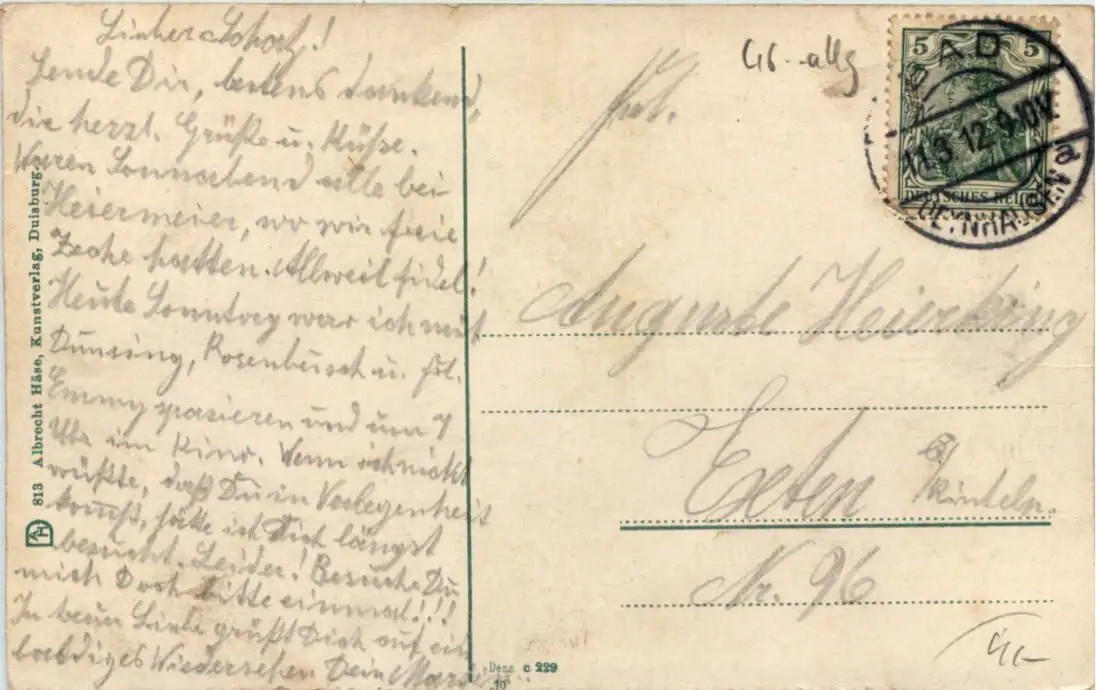 Lieber Schatz!
Sende Dir, bestens dankend,
die herzl. Grüße u. Küsse.
Waren Sonnabend alle bei
Heiermeier, wo wir freie
Zeche hatten. Allweil fidel!
Heute Sonntag war ich mit
Dünsing, Rosenbusch u. Frl.
Emmy spazieren und um 7
Uhr im Kino. Wenn ich nicht
wüßte, daß Du in Verlegenheit
kommst, hätte ich Dich längst
besucht. Leider! Besuche Du
mich Doch bitte einmal!!!
In treuer Liebe grüßt Dich auf ein
baldiges Wiedersehen Dein
813 Albrecht Häse, Kunstverlag, Duisburg.
AH
Dess c 229
10
Frl.
Auguste Heierking
Exten b/Rinteln.
Nr. 96
5 5
DEUTSCHES REICH
BAD
11.3 12. 9-10V.
OEYNHAUSEN a
4-